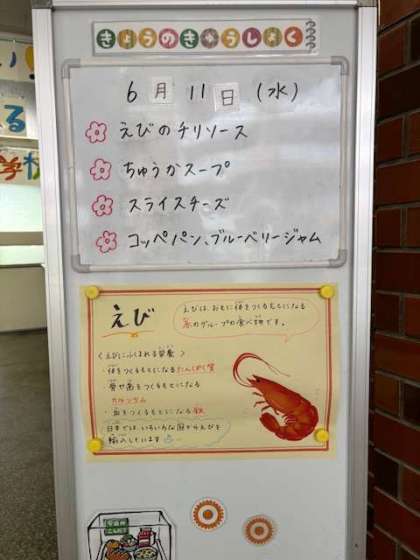 きょうのきゅうしょく
6月11日(水)
えびのチリソース
ちゅうかスープ
スライスチーズ
コッペパン、ブルーベリージャム
えび
えびは、おもに体をつくるもとになる
赤のグループの食べ物です。
<えびにふくまれる栄養>
・体をつくるもとになるたんぱく質
・骨や歯をつくるもとになる
カルシウム
・血をつくるもとになる鉄
日本では、いろいろな国からえびを
輸入しています